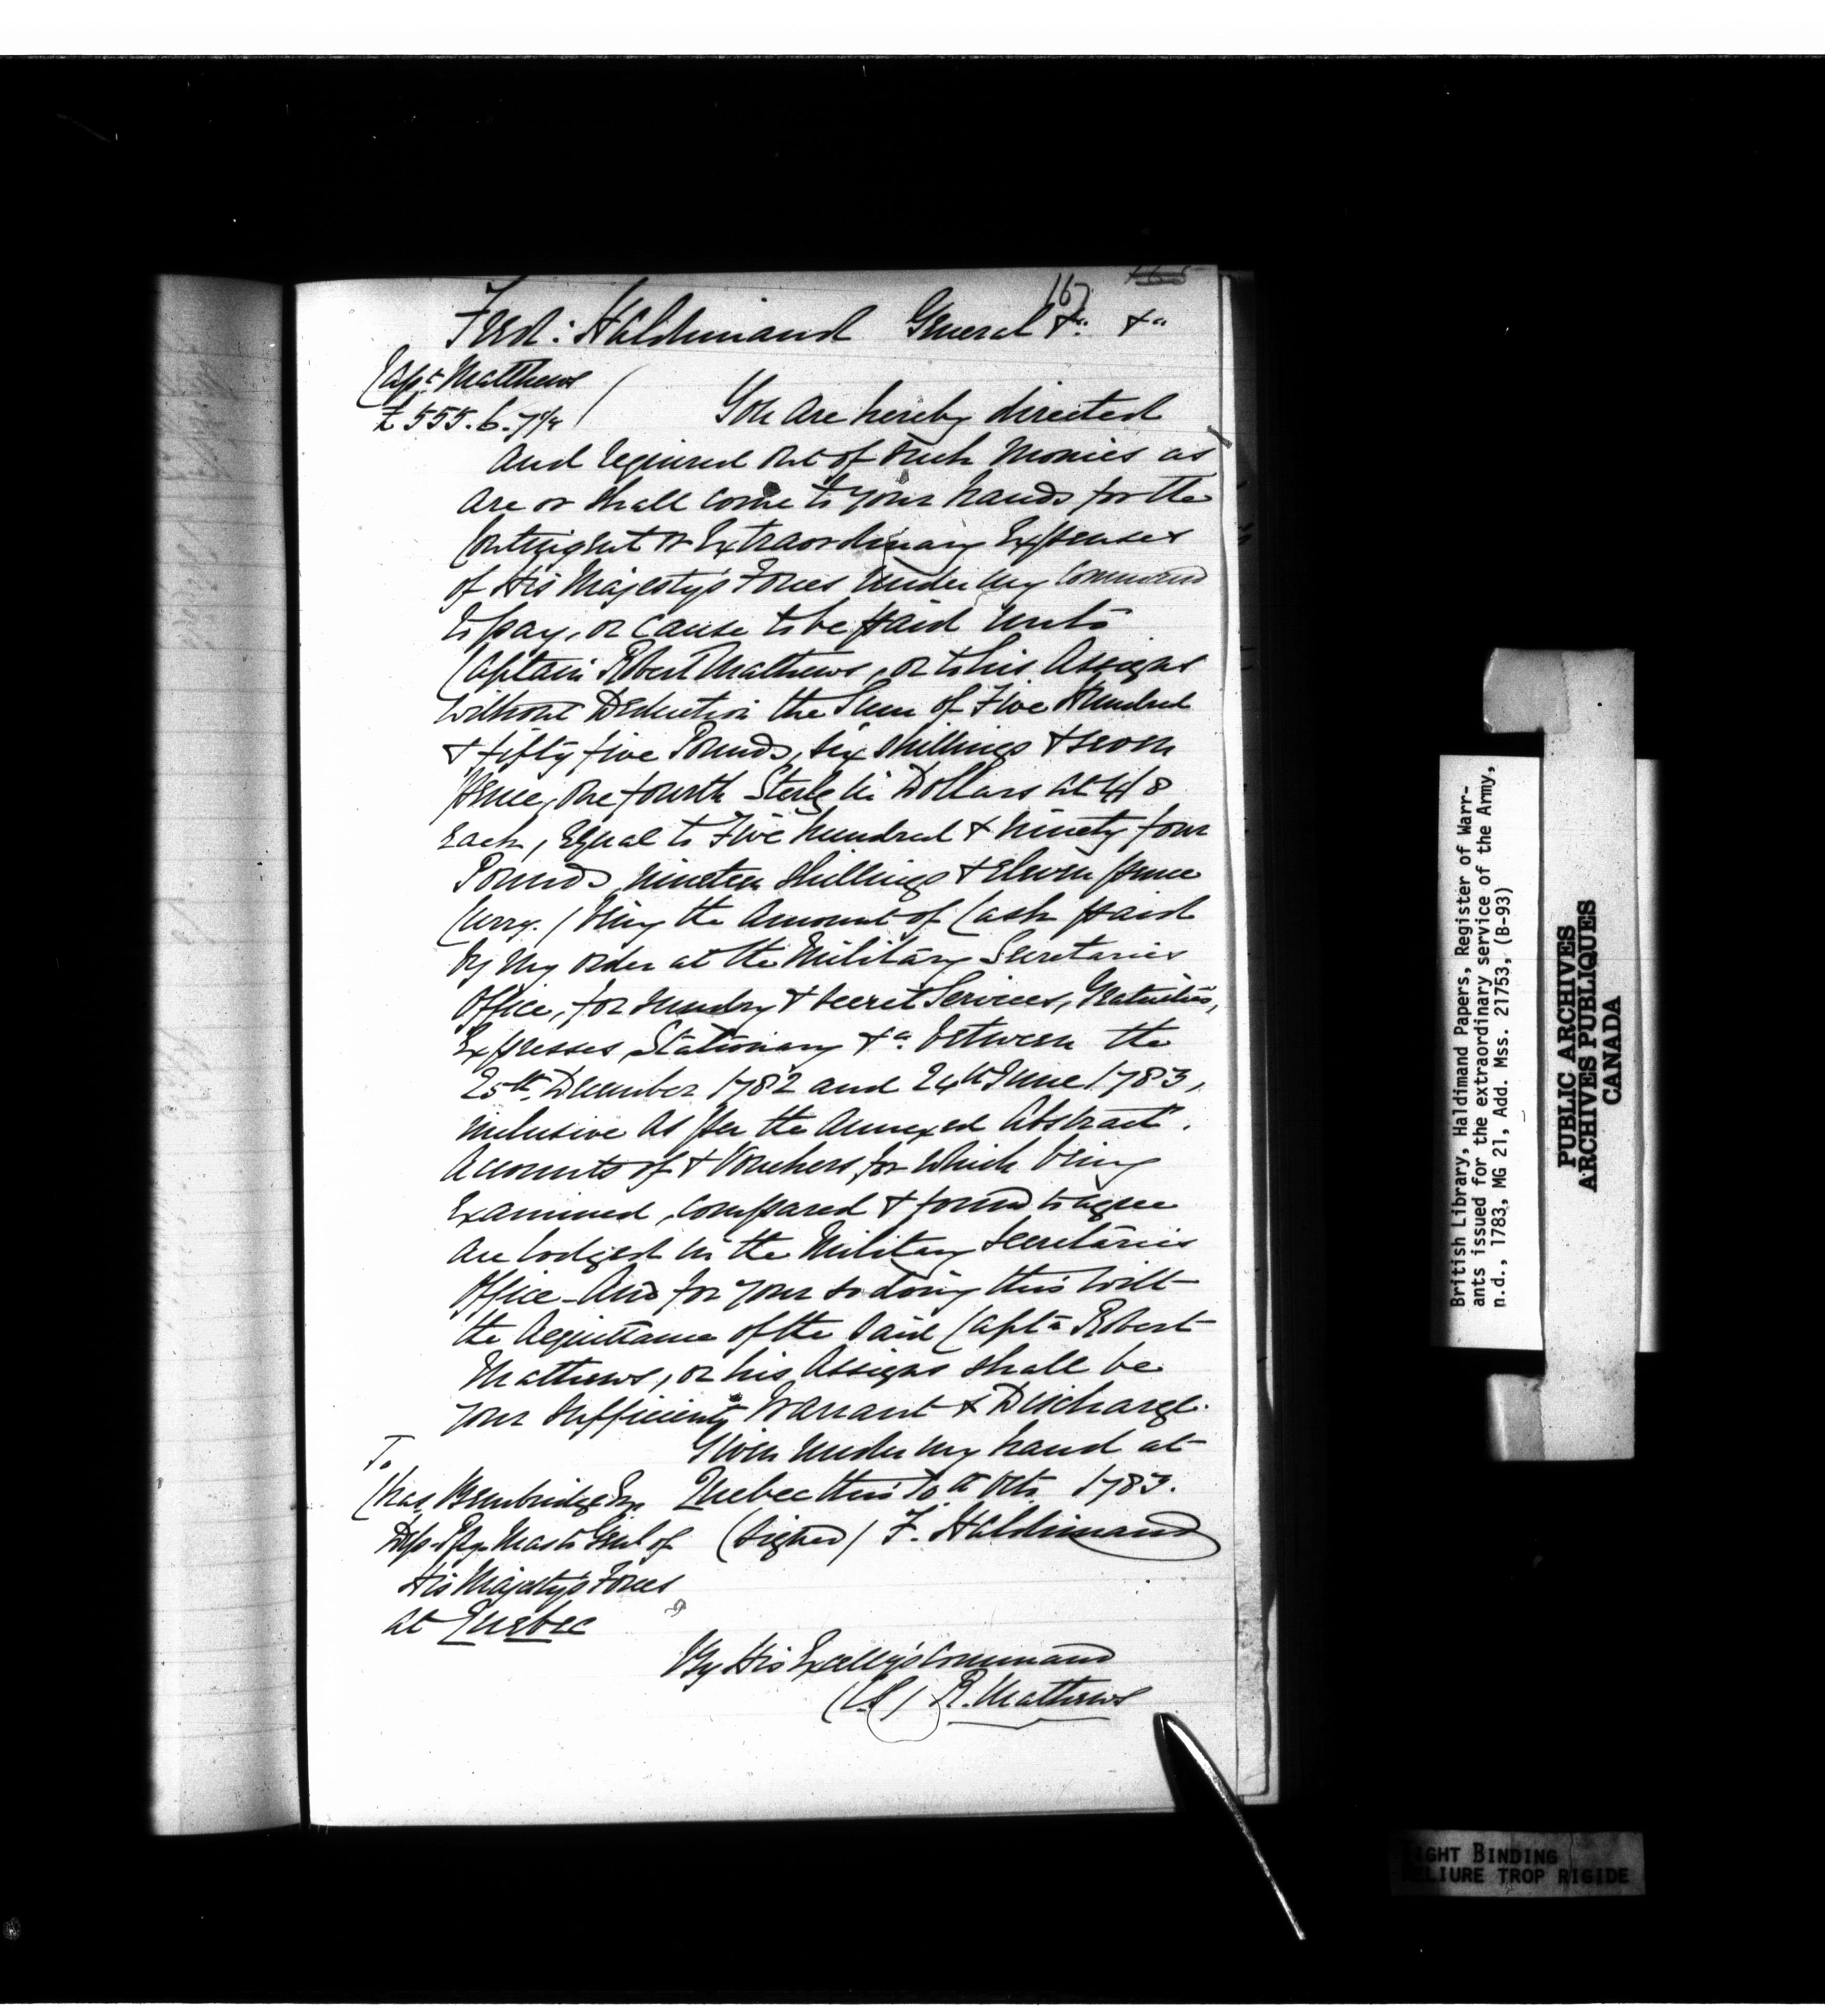 167
Ferd: Haldimand General &c. &c.
Capt Matthews
£555.6.7¼
You are hereby directed
and required out of such Monies as
are or shall come to your hands for the
Contingent or Extraordinary Expenses
of His Majesty's Forces under my Command
to pay, or cause to be paid unto
Captain Robert Mathews, or to his Assigns
without Deduction the Sum of Five Hundred
& fifty five Pounds, six shillings & seven
pence, one fourth Sterlg in Dollars at 4/8
each, equal to Five hundred & ninety four
Pounds nineteen shillings & eleven pence
Curry. / being the Amount of Cash paid
by my order at the Military Secretaries
Office, for sundry & secret Services, Gratuities,
Expresses, Stationary &a. between the
25th December 1782 and 24th June 1783,
inclusive as per the annexed Abstract.
Accounts of & Vouchers for which being
Examined, compared & found to agree
are lodged in the Military Secretaries
Office - And for your so doing this with
the Acquittance of the said Capt. Robert
Mathews, or his Assigns shall be
your sufficient Warrant & Discharge.
Given under my hand at
Quebec this 10th Octo. 1783.
(signed) F. Haldimand
To
Chas. Bembridge Esq
Dep. Pay Mastr Genl of
His Majesty's Forces
at Quebec
By His Excelly's Command
R. Mathews
British Library, Haldimand Papers, Register of Warr-
ants issued for the extraordinary service of the Army,
n.d., 1783, MG 21, Add. Mss. 21753, (B-93)
PUBLIC ARCHIVES
ARCHIVES PUBLIQUES
CANADA
TIGHT BINDING
RELIURE TROP RIGIDE